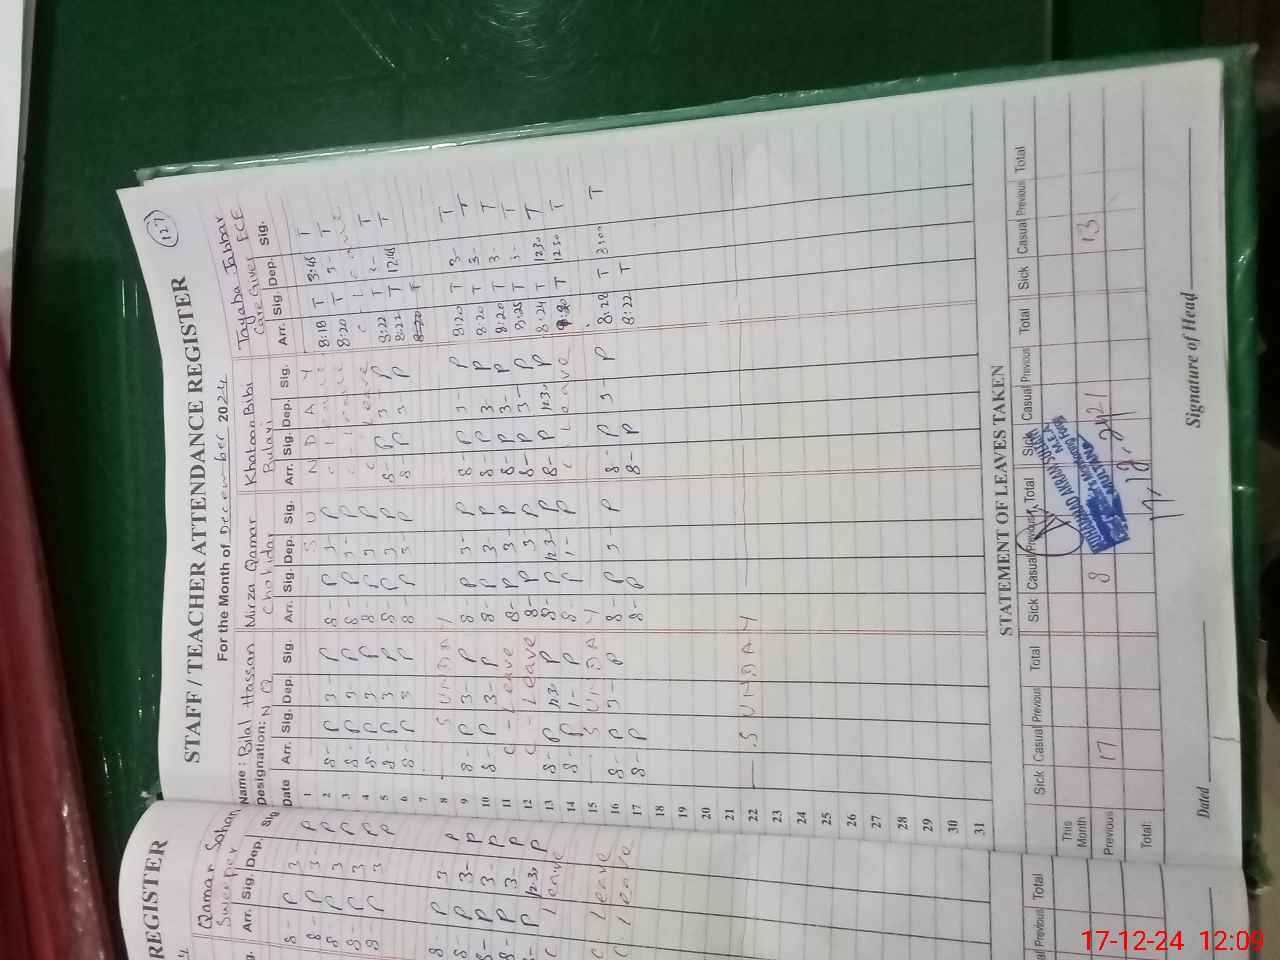 (127)
STAFF / TEACHER ATTENDANCE REGISTER
For the Month of December 2024
Name : Bilal Hassan Mirza Qamar Khatoon Bibi Tayaba Jabbar
Designation: N Q Chokidar Bulavi Care Giver ECE
Date Arr. Sig. Dep. Sig. Arr. Sig. Dep. Sig. Arr. Sig. Dep. Sig. Arr. Sig. Dep. Sig.
1 S U N D A Y 8:18 T 3:45 T
2 8- P 3- P 8- P 3- P C Leave 8:20 T 3- T
3 8- P 3- P 8- P 3- P C Leave C Leave
4 8- P 3 P 8- P 3 P C Leave 8:22 T 3- T
5 8- P 3- P 8- P 3 P 8- P 3 P 8:22 T 12:45 T
6 8- P 3 P 8- P 3- P 8 P 3- P 8:20 T
7
8 S U N D A Y
9 8- P 3- P 8- P 3- P 8- P 3- P 8:20 T 3- T
10 8- P 3- P 8- P 3- P 8- P 3- P 8:20 T 3- T
11 C - Leave 8- P 3- P 8- P 3- P 8:20 T 3- T
12 C - Leave 8- P 3 P 8- P 3- P 8:25 T 3- T
13 8- P 12:30 P 8- P 12:30 P 8- P 12:30 P 8:24 T 12:30 T
14 8- P 1- P 8- P 1- P C Leave 8:20 T 12:30 T
15 S U N D A Y
16 8- P 3- P 8- P 3- P 8- P 3- P 8:28 T 3:00 T
17 8- P 8- P 8- P 8:22 T
18
19
20
21
22 S U N D A Y
23
24
25
26
27
28
29
30
31
STATEMENT OF LEAVES TAKEN
Sick Casual Previous Total Sick Casual Previous Total Sick Casual Previous Total Sick Casual Previous Total
This Month
Previous 17 8 13
Total:
MUHAMMAD AKRAM
M.E.A
MULTAN
Dated
Signature of Head
REGISTER
Qamar
Sweeper
Arr. Sig. Dep. Sig
8- P 3- P
8- P 3- P
8- P 3 P
8- P 3 P
8- P 3 P
8- P 3- P
8- P 3- P
8- P 3- P
8- P 3- P
8- P 12:30 P
C Leave
C Leave
C Leave
Previous Total
17-12-24 12:09